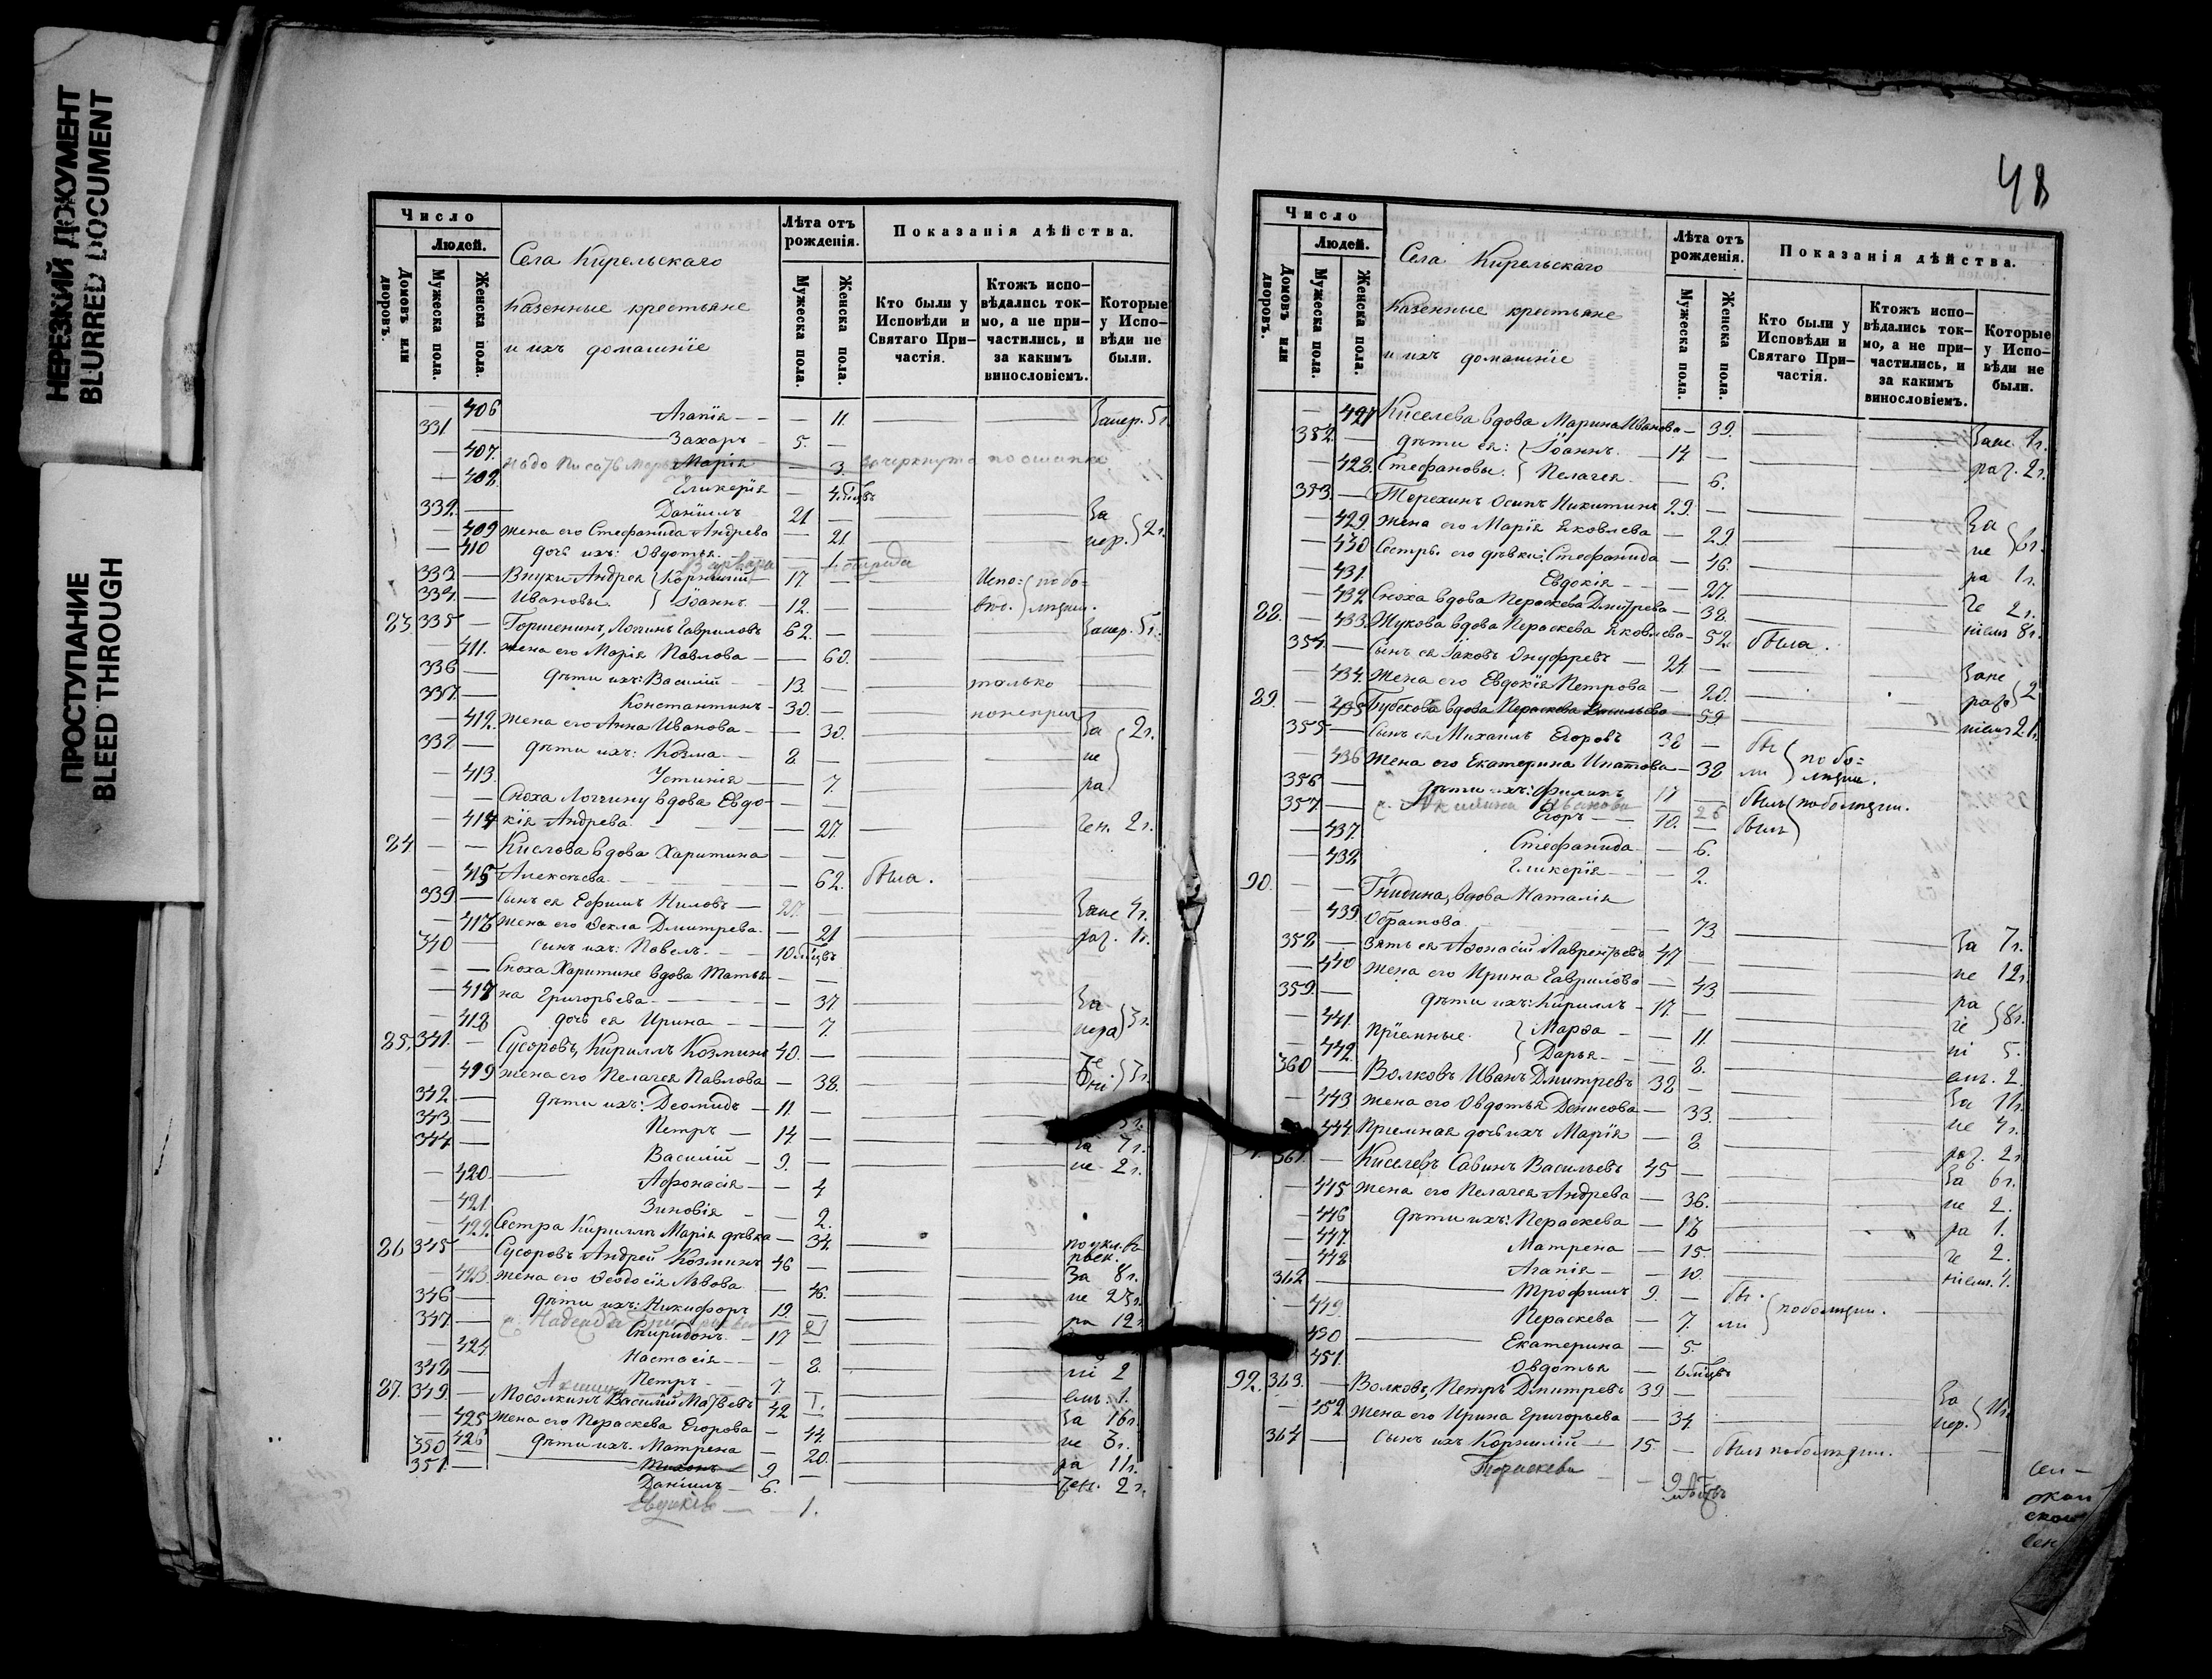 НЕРЕЗКИЙ ДОКУМЕНТ
BLURRED DOCUMENT
ПРОСТУПАНИЕ
BLEED THROUGH
Число
Людей.
Домовъ или дворовъ.
Мужеска пола.
Женска пола.
Села Кирельскаго
казенные крестьяне
и ихъ домашніе
Лѣта отъ рожденія.
Мужеска пола.
Женска пола.
Показанія дѣйства.
Кто были у Исповѣди и Святаго Причастія.
Ктожъ исповѣдались токмо, а не причастились, и за какимъ винословіемъ.
Которые у Исповѣди не были.
406 Агапія — — 11.
331. Захаръ 5. —
407. Надо писать Марья Марія — 3. зачеркнуто по ошибке
408. Гликерія — 4. мцъ
332. Даніилъ 21 — За
409 жена его Стефанида Андрева — 21 нер. 2 г.
410 дочь ихъ: Овдотья
Варвара
333 — Внуки Андрея Корнилій 17 — Испо= по бо=
334. — Ивановы. Іоаннъ 12. — вѣд. лѣзни.
83. 335 — Горшенинъ, Логинъ Гавриловъ 62. —
411. жена его Марія Павлова — 60.
336 — дѣти ихъ: Василій 13. — только
337. — Константинъ 30. —
412. жена его Анна Иванова — 30. За 2 г.
338 — дѣти ихъ: Козма 8 — не
413. Устинія — 7. ра
— Сноха Логгину вдова Евдо-
414 кія Андрева — 27. чен. 2 г.
84 — — Кислова вдова Харитина
415 Алексѣева — 62. была.
339 — Сынъ ея Ефимъ Ниловъ
416 жена его Ѳекла Дмитрева — 21
340 — сынъ ихъ: Павелъ 10 мцвъ
— — Сноха Харитине вдова Татья-
417 на Григорьева — 37. За
418 дочь ея Ирина — 7. нера 3 г.
85. 341. — Сусоровъ, Кириллъ Козминъ 40. —
419 жена его Пелагея Павлова — 38.
342. — дѣти ихъ: Деомидъ 11 —
343 — Петръ 14 —
344 — Василій 9. — не 2 г.
420. Афонасія — 4
421. Зиновія — 2.
422. Сестра Кирилла Марія дѣвка — 34.
86 345 Сусоровъ Андрей Козминъ 46 —
423. жена его Ѳеодосія Львова — 46. За 8 г.
346 — дѣти ихъ: Никифоръ 19. —
Надежда
347 — Спиридонъ 17 — ра 12
424. Настасія — 8.
348 — Петръ 7. — ні 2
87. 349. — Мосолкинъ Василій Матвевъ 42 — емъ. 1.
425 жена его Пераскева Егорова — 44. За 16 г.
426 дѣти ихъ. Матрена — 20. не 3 г.
350 — Тихонъ 9 — ра 11 г.
351. — Даніилъ 6. чен. 2 г.
— 1.
48
Число
Людей.
Домовъ или дворовъ.
Мужеска пола.
Женска пола.
Села Кирельскаго
Казенные крестьяне
и ихъ домашніе
Лѣта отъ рожденія.
Мужеска пола.
Женска пола.
Показанія дѣйства.
Кто были у Исповѣди и Святаго Причастія.
Ктожъ исповѣдались токмо, а не причастились, и за какимъ винословіемъ.
Которые у Исповѣди не были.
427 Киселева вдова Марина Иванова — 39.
352. — дѣти ея: Іоаннъ 14 —
428. Стефановы. Пелагея — 6.
353. — Терехинъ Осипъ Никитинъ 29. — За
429. жена его Марія Яковлева — 29. не 6 г.
430 Сестры его дѣвки: Стефанида — 46. ра 1 г.
431. Евдокія — 27. че 2 г.
432 Сноха вдова Пераскева Дмитрева — 38. ніемъ 8 г.
88. 433. Жукова вдова Пераскева Яковлева — 52. была.
354. — Сынъ ея Іаковъ Онуфревъ 24. —
434. жена его Евдокія Петрова — 20.
89. 435 Губекова вдова Пераскева Васильева — 59.
355 — Сынъ ея Михаилъ Егоровъ 38 — бы по бо=
436 жена его Екатерина Ипатова — 38 ли лѣзни.
356 — дѣти ихъ: Филипъ 17 — былъ по болѣзни.
Акилина Иванова 26
357 — Егоръ 10. — былъ
437. Стефанида — 6.
438 Гликерія — 2.
90. — — Гнидина, вдова Наталія
439. Обрамова — 73 За 7 г.
358 — Зять ея Афонасій Лаврентьевъ 47 не 12 г.
440 жена его Ирина Гаврилова — 43 ра
359. — дѣти ихъ: Кириллъ 17. — че 8 г.
441. Пріемные Марѳа — 11. ні 5.
442. Дарья — 8. емъ. 2.
360 — Волковъ Иванъ Дмитревъ 38 — За 11 г.
443 жена его Овдотья Денисова — 33. не 4 г.
444 Пріемная дочь ихъ Марія — 8 раз. 2 г.
361. — Киселевъ Савинъ Васильевъ 45 — За 6 г.
445 жена его Пелагея Андрева — 36. не 2.
446 дѣти ихъ: Пераскева — 18 ра 1.
447. Матрена — 15. че 2.
448 Агапія — 10. ніемъ. 4.
362 — Трофимъ 9. — бы
449. Пераскева — 7. ли по болѣзни.
450 Екатерина — 5.
451. Овдотья — 6 мцвъ
92. 363. — Волковъ, Петръ Дмитревъ 39. — За
452 жена его Ирина Григорьева — 34 нер. 11 г.
364 — сынъ ихъ Корнилій 15. — былъ по болѣзни.
Пераскева — 9 мѣсцъ